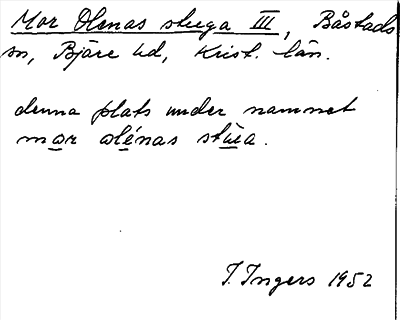 Mor Olenas stuga III, Båstads
sn, Bjäre hd, Krist. län.
denna plats under namnet
mor olénas stùa.
I. Ingers 1952